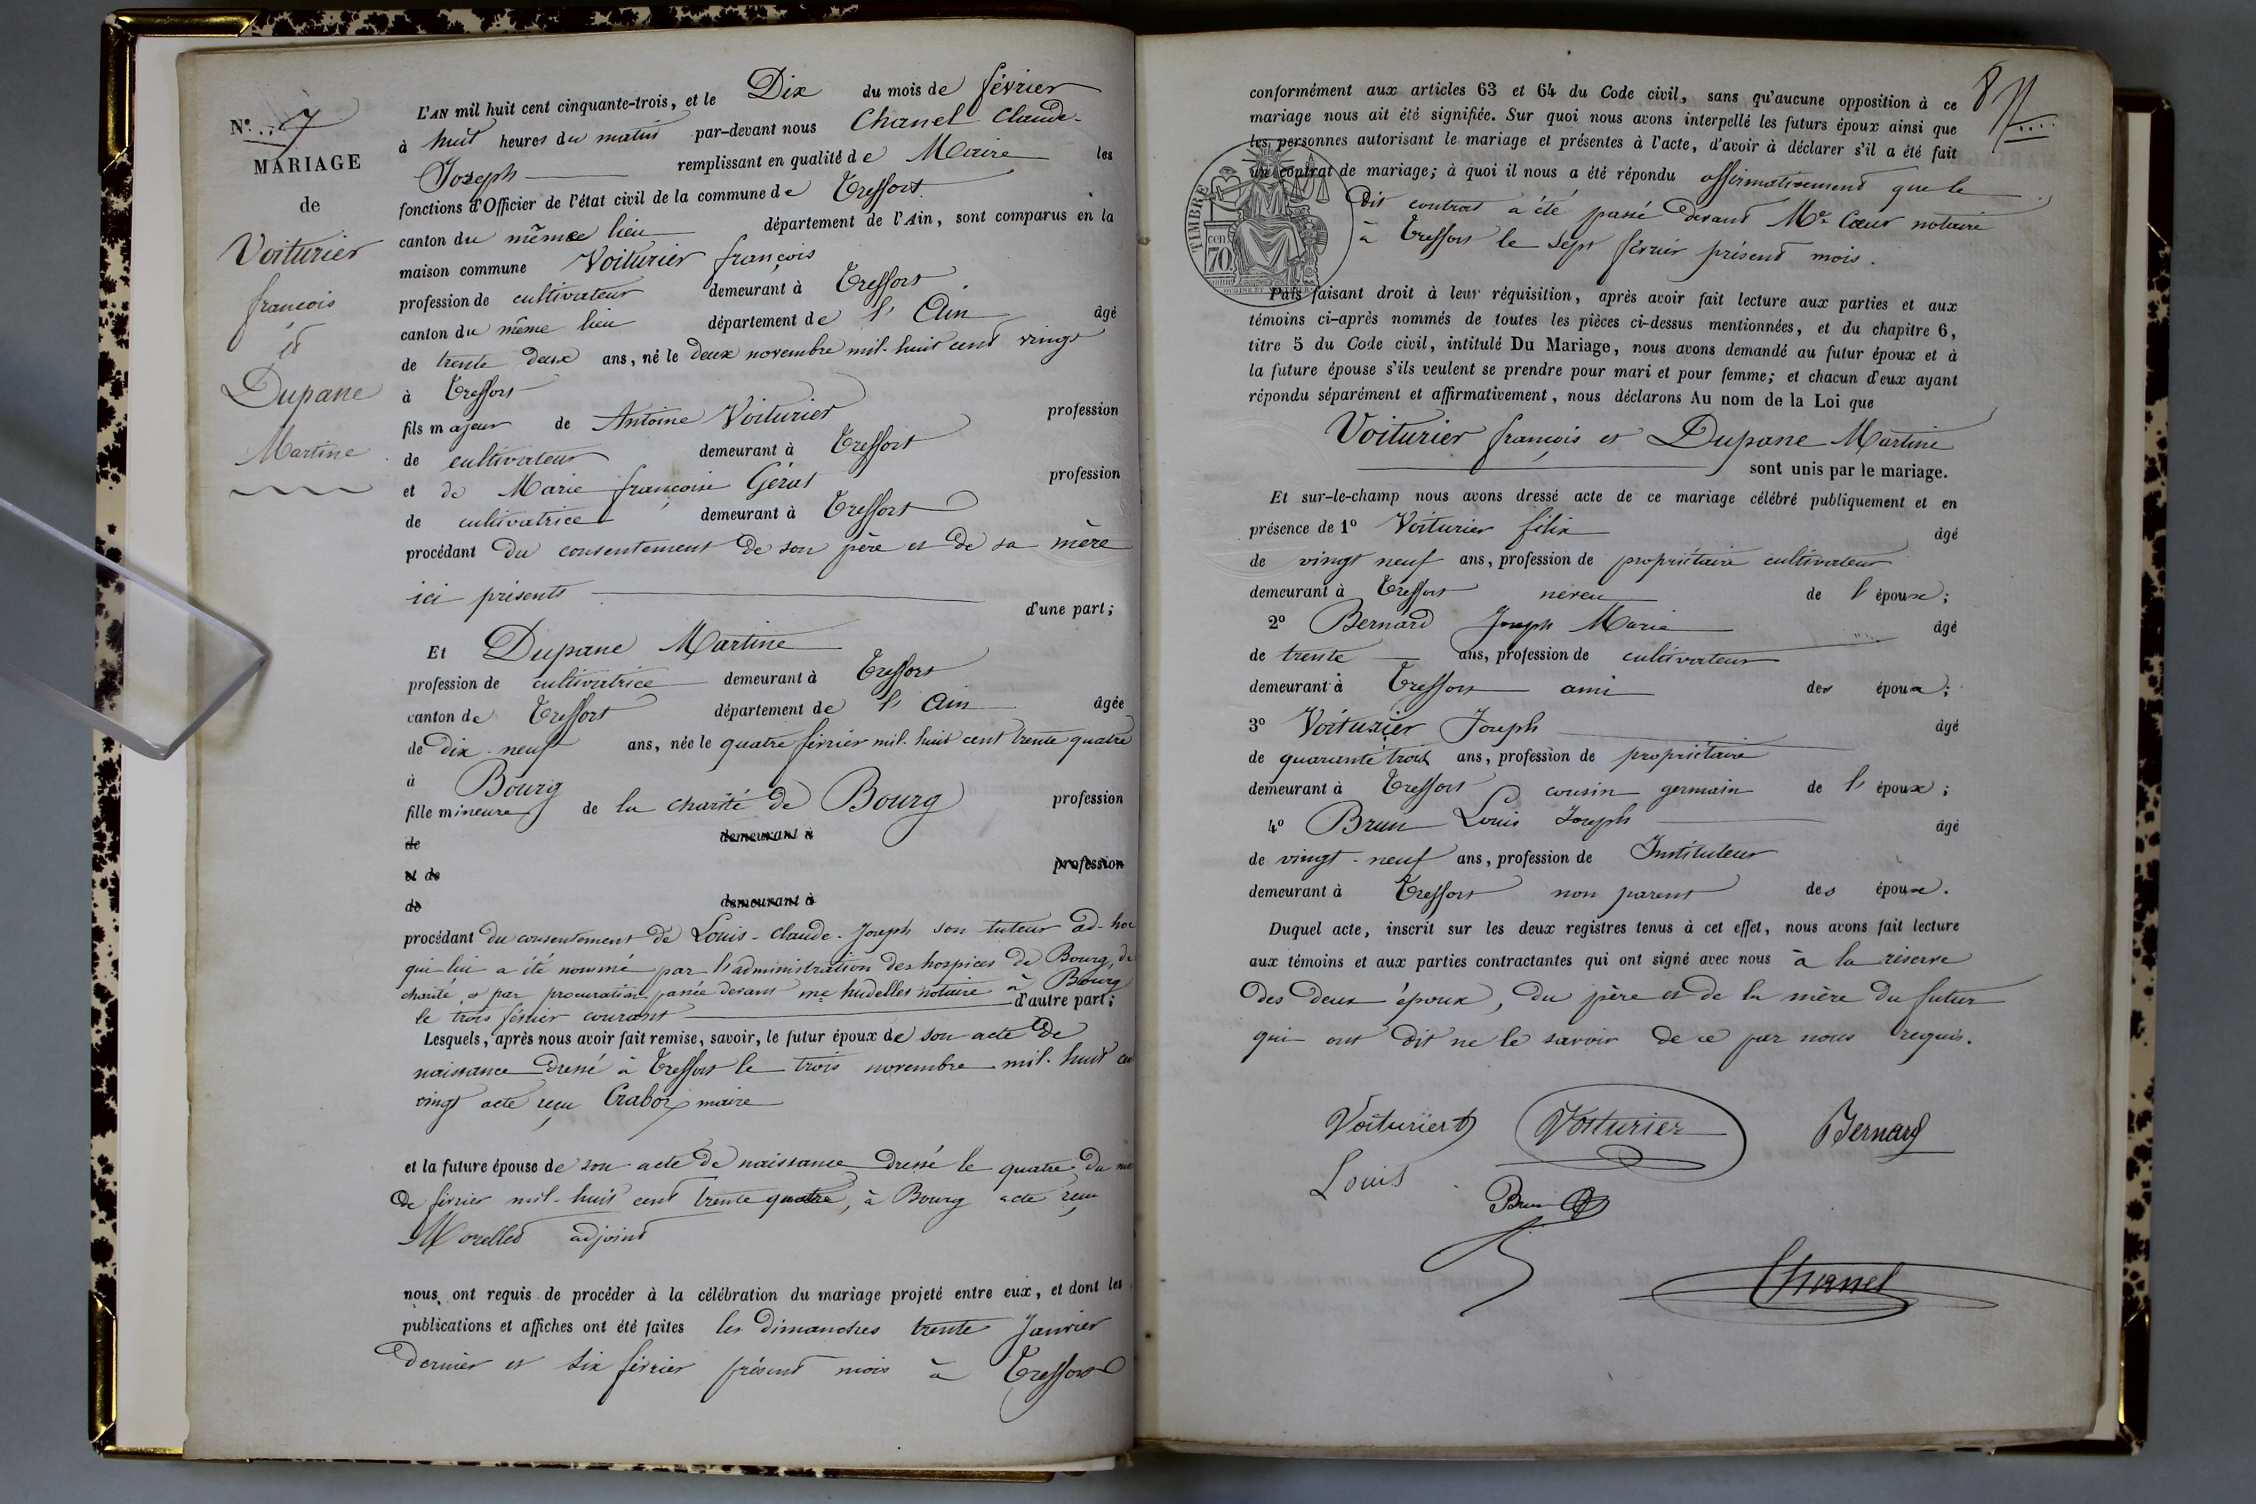 N° 7
MARIAGE
de
Voiturier
françois
et
Dupane
Martine
L'AN mil huit cent cinquante-trois, et le Dix du mois de février
à huit heures du matin par-devant nous Chanel Claude-
Joseph remplissant en qualité de Maire les
fonctions d'Officier de l'état civil de la commune de Treffort
canton du même lieu département de l'Ain, sont comparus en la
maison commune Voiturier françois
profession de cultivateur demeurant à Treffort
canton du même lieu département de l'Ain âgé
de trente deux ans, né le deux novembre mil-huit cent vingt
à Treffort
fils majeur de Antoine Voiturier profession
de cultivateur demeurant à Treffort
et de Marie françoise profession
de cultivatrice demeurant à Treffort
procédant du consentement de son père et de sa mère
ici présents d'une part;
Et Dupane Martine
profession de cultivatrice demeurant à Treffort
canton de Treffort département de l'Ain âgée
de dix-neuf ans, née le quatre février mil-huit cent trente quatre
à Bourg
fille mineure de la charité de Bourg profession
de demeurant à
et de profession
de demeurant à
procédant du consentement de Louis-Claude-Joseph son tuteur ad-hoc
qui lui a été nommé par l'administration des hospices de Bourg, de
charité, et par procuration passée devant me notaire à Bourg
le trois février courant d'autre part;
Lesquels, après nous avoir fait remise, savoir, le futur époux de son acte de
naissance dressé à Treffort le trois novembre mil-huit cent
vingt acte reçu maire
et la future épouse de son acte de naissance dressé le quatre du mois
de février mil-huit cent trente quatre, à Bourg acte reçu
adjoint
nous ont requis de procéder à la célébration du mariage projeté entre eux, et dont les
publications et affiches ont été faites les dimanches trente Janvier
dernier et six février présent mois à Treffort
conformément aux articles 63 et 64 du Code civil, sans qu'aucune opposition à ce
mariage nous ait été signifiée. Sur quoi nous avons interpellé les futurs époux ainsi que
les personnes autorisant le mariage et présentes à l'acte, d'avoir à déclarer s'il a été fait
un contrat de mariage; à quoi il nous a été répondu affirmativement que le
dit contrat a été passé devant Me Cœur notaire
à Treffort le sept février présent mois.
TIMBRE
cen
70
Puis faisant droit à leur réquisition, après avoir fait lecture aux parties et aux
témoins ci-après nommés de toutes les pièces ci-dessus mentionnées, et du chapitre 6,
titre 5 du Code civil, intitulé Du Mariage, nous avons demandé au futur époux et à
la future épouse s'ils veulent se prendre pour mari et pour femme; et chacun d'eux ayant
répondu séparément et affirmativement, nous déclarons Au nom de la Loi que
Voiturier françois et Dupane Martine
sont unis par le mariage.
Et sur-le-champ nous avons dressé acte de ce mariage célébré publiquement et en
présence de 1° Voiturier félix âgé
de vingt neuf ans, profession de propriétaire cultivateur
demeurant à Treffort neveu de l'époux;
2° Bernard Joseph Marie âgé
de trente ans, profession de cultivateur
demeurant à Treffort ami des époux;
3° Voiturier Joseph âgé
de quarante trois ans, profession de propriétaire
demeurant à Treffort cousin germain de l'époux;
4° Brun Louis Joseph âgé
de vingt-neuf ans, profession de Instituteur
demeurant à Treffort non parent des époux.
Duquel acte, inscrit sur les deux registres tenus à cet effet, nous avons fait lecture
aux témoins et aux parties contractantes qui ont signé avec nous à la réserve
des deux époux, du père et de la mère du futur
qui ont dit ne le savoir de ce par nous requis.
Voiturier Voiturier Bernard
Louis Brun
Chanel